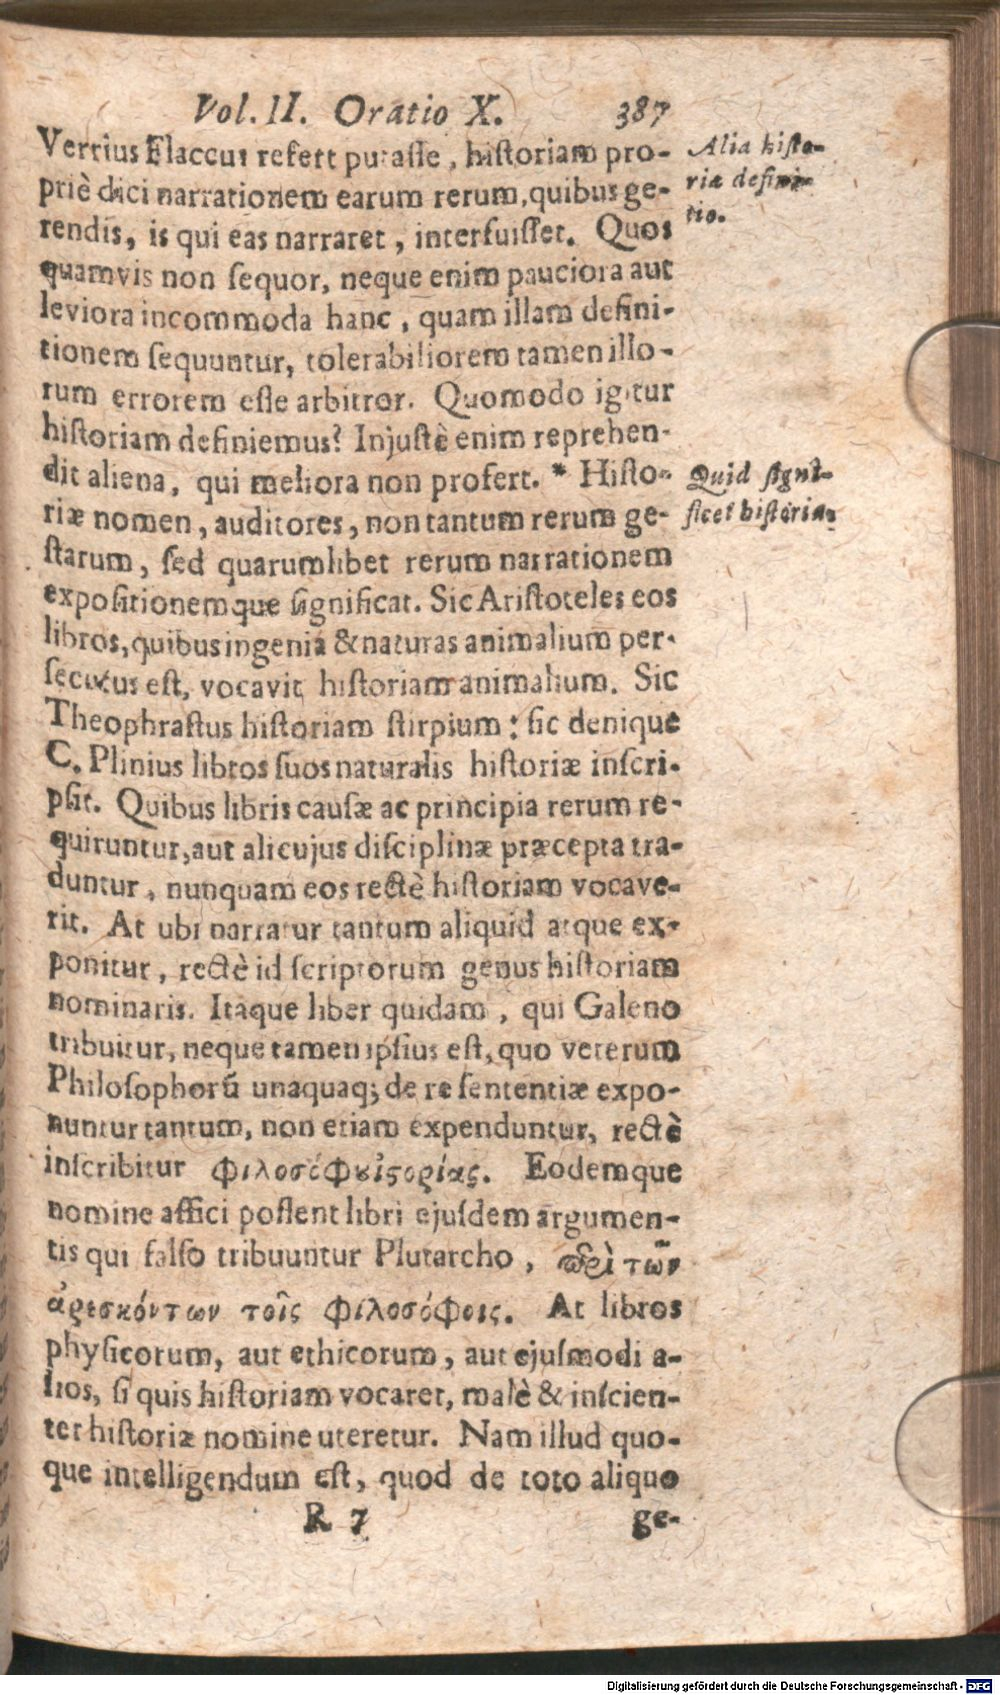 Vol. II. Oratio X. 387
Verrius Flaccus refert putasse, historiam pro-
priè dici narrationem earum rerum, quibus ge-
rendis, is qui eas narraret, interfuisset. Quos
quamvis non sequor, neque enim pauciora aut
leviora incommoda hanc, quam illam defini-
tionem sequuntur, tolerabiliorem tamen illo-
rum errorem esse arbitror. Quomodo igitur
historiam definiemus? Injustè enim reprehen-
dit aliena, qui meliora non profert. * Histo-
riæ nomen, auditores, non tantum rerum ge-
starum, sed quarumlibet rerum narrationem
expositionemque significat. Sic Aristoteles eos
libros, quibus ingenia & naturas animalium per-
secutus est, vocavit historiam animalium. Sic
Theophrastus historiam stirpium: sic denique
C. Plinius libros suos naturalis historiæ inscri-
psit. Quibus libris causæ ac principia rerum re-
quiruntur, aut alicujus disciplinæ præcepta tra-
duntur, nunquam eos rectè historiam vocave-
rit. At ubi narratur tantum aliquid atque ex-
ponitur, rectè id scriptorum genus historiam
nominaris. Itaque liber quidam, qui Galeno
tribuitur, neque tamen ipsius est, quo veterum
Philosophorū unaquaq; de re sententiæ expo-
nuntur tantum, non etiam expenduntur, rectè
inscribitur φιλοσόφου ἱστορίας. Eodemque
nomine affici possent libri ejusdem argumen-
tis qui falso tribuuntur Plutarcho, περὶ τῶν
ἀρεσκόντων τοῖς φιλοσόφοις. At libros
physicorum, aut ethicorum, aut ejusmodi a-
lios, si quis historiam vocaret, malè & inscien-
ter historiæ nomine uteretur. Nam illud quo-
que intelligendum est, quod de toto aliquo
R 7 ge-
Alia histo-
riæ defini-
tio.
Quid signi-
ficet historia.
Digitalisierung gefördert durch die Deutsche Forschungsgemeinschaft - DFG